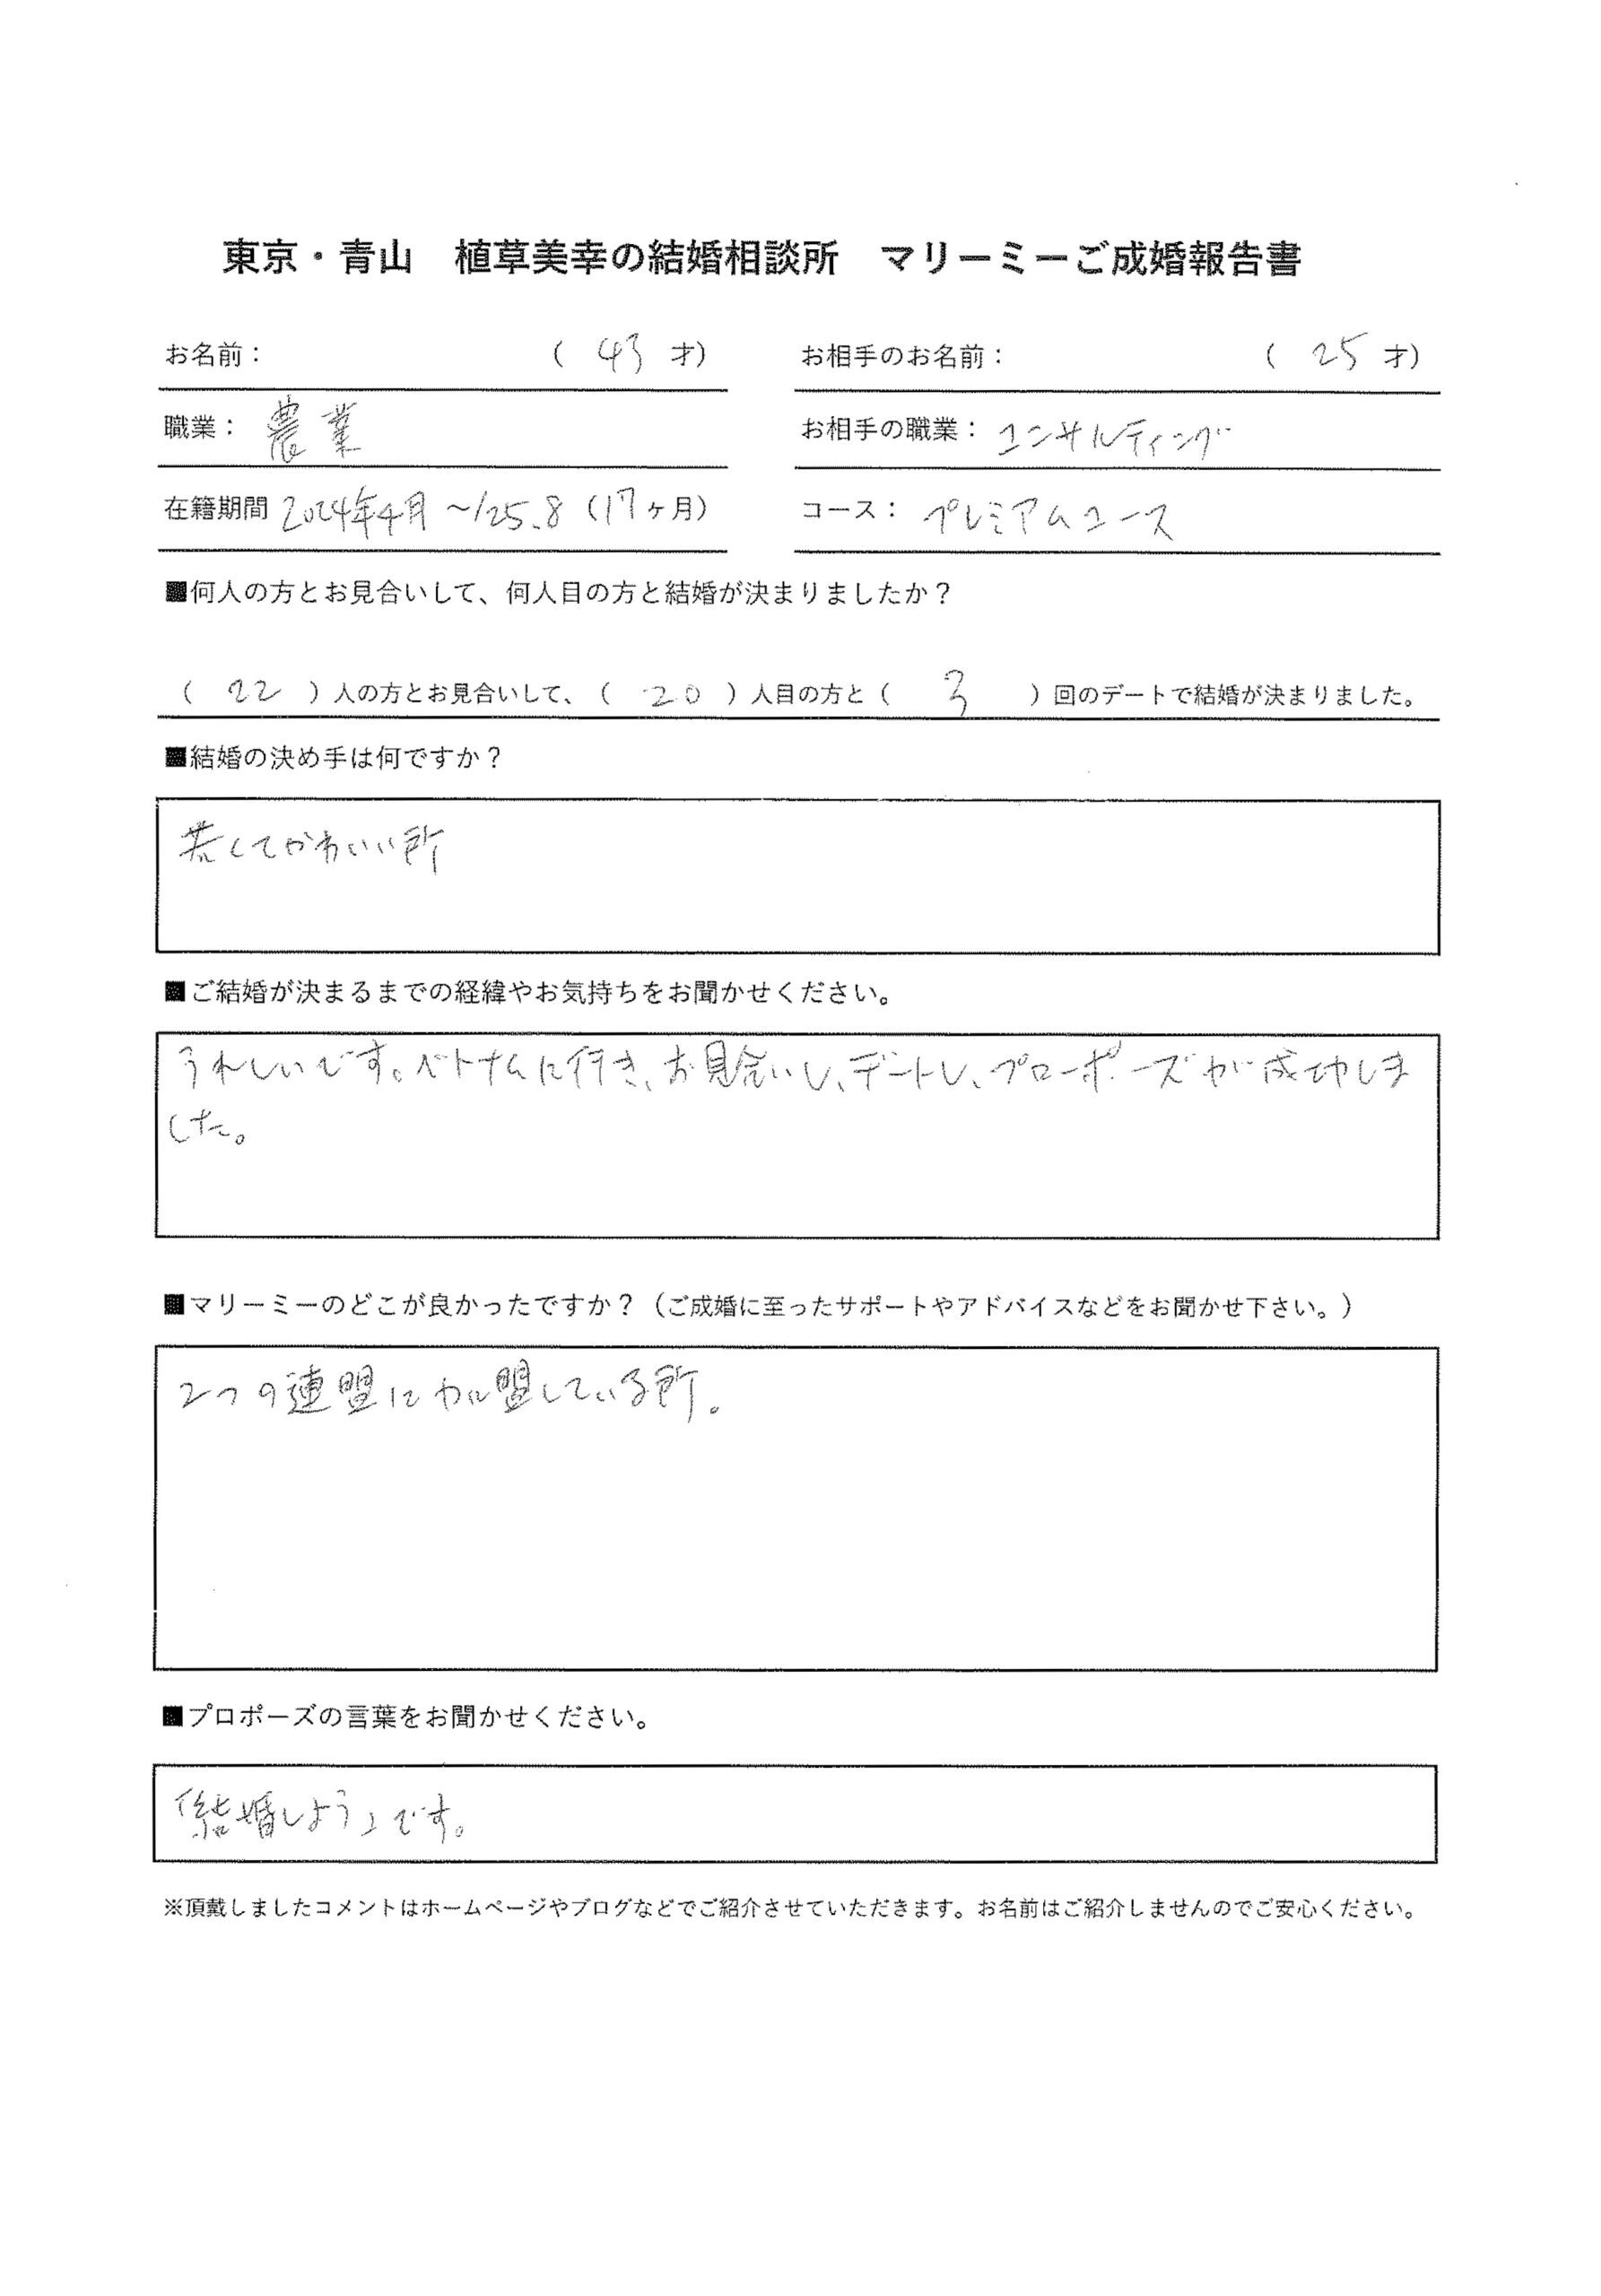 東京・青山　植草美幸の結婚相談所　マリーミーご成婚報告書
お名前：　（ 43 才）　お相手のお名前：　（ 25 才）
職業： 農業　お相手の職業： コンサルティング
在籍期間 2024年4月 ～'25.8 （17ヶ月）　コース： プレミアムコース
■何人の方とお見合いして、何人目の方と結婚が決まりましたか？
（ 22 ）人の方とお見合いして、（ 20 ）人目の方と（ 3 ）回のデートで結婚が決まりました。
■結婚の決め手は何ですか？
若くてかわいい所
■ご結婚が決まるまでの経緯やお気持ちをお聞かせください。
うれしいです。ベトナムに行き、お見合いし、デートし、プローポーズが成功しま
した。
■マリーミーのどこが良かったですか？（ご成婚に至ったサポートやアドバイスなどをお聞かせ下さい。）
2つの連盟に加盟している所。
■プロポーズの言葉をお聞かせください。
「結婚しよう」です。
※頂戴しましたコメントはホームページやブログなどでご紹介させていただきます。お名前はご紹介しませんのでご安心ください。